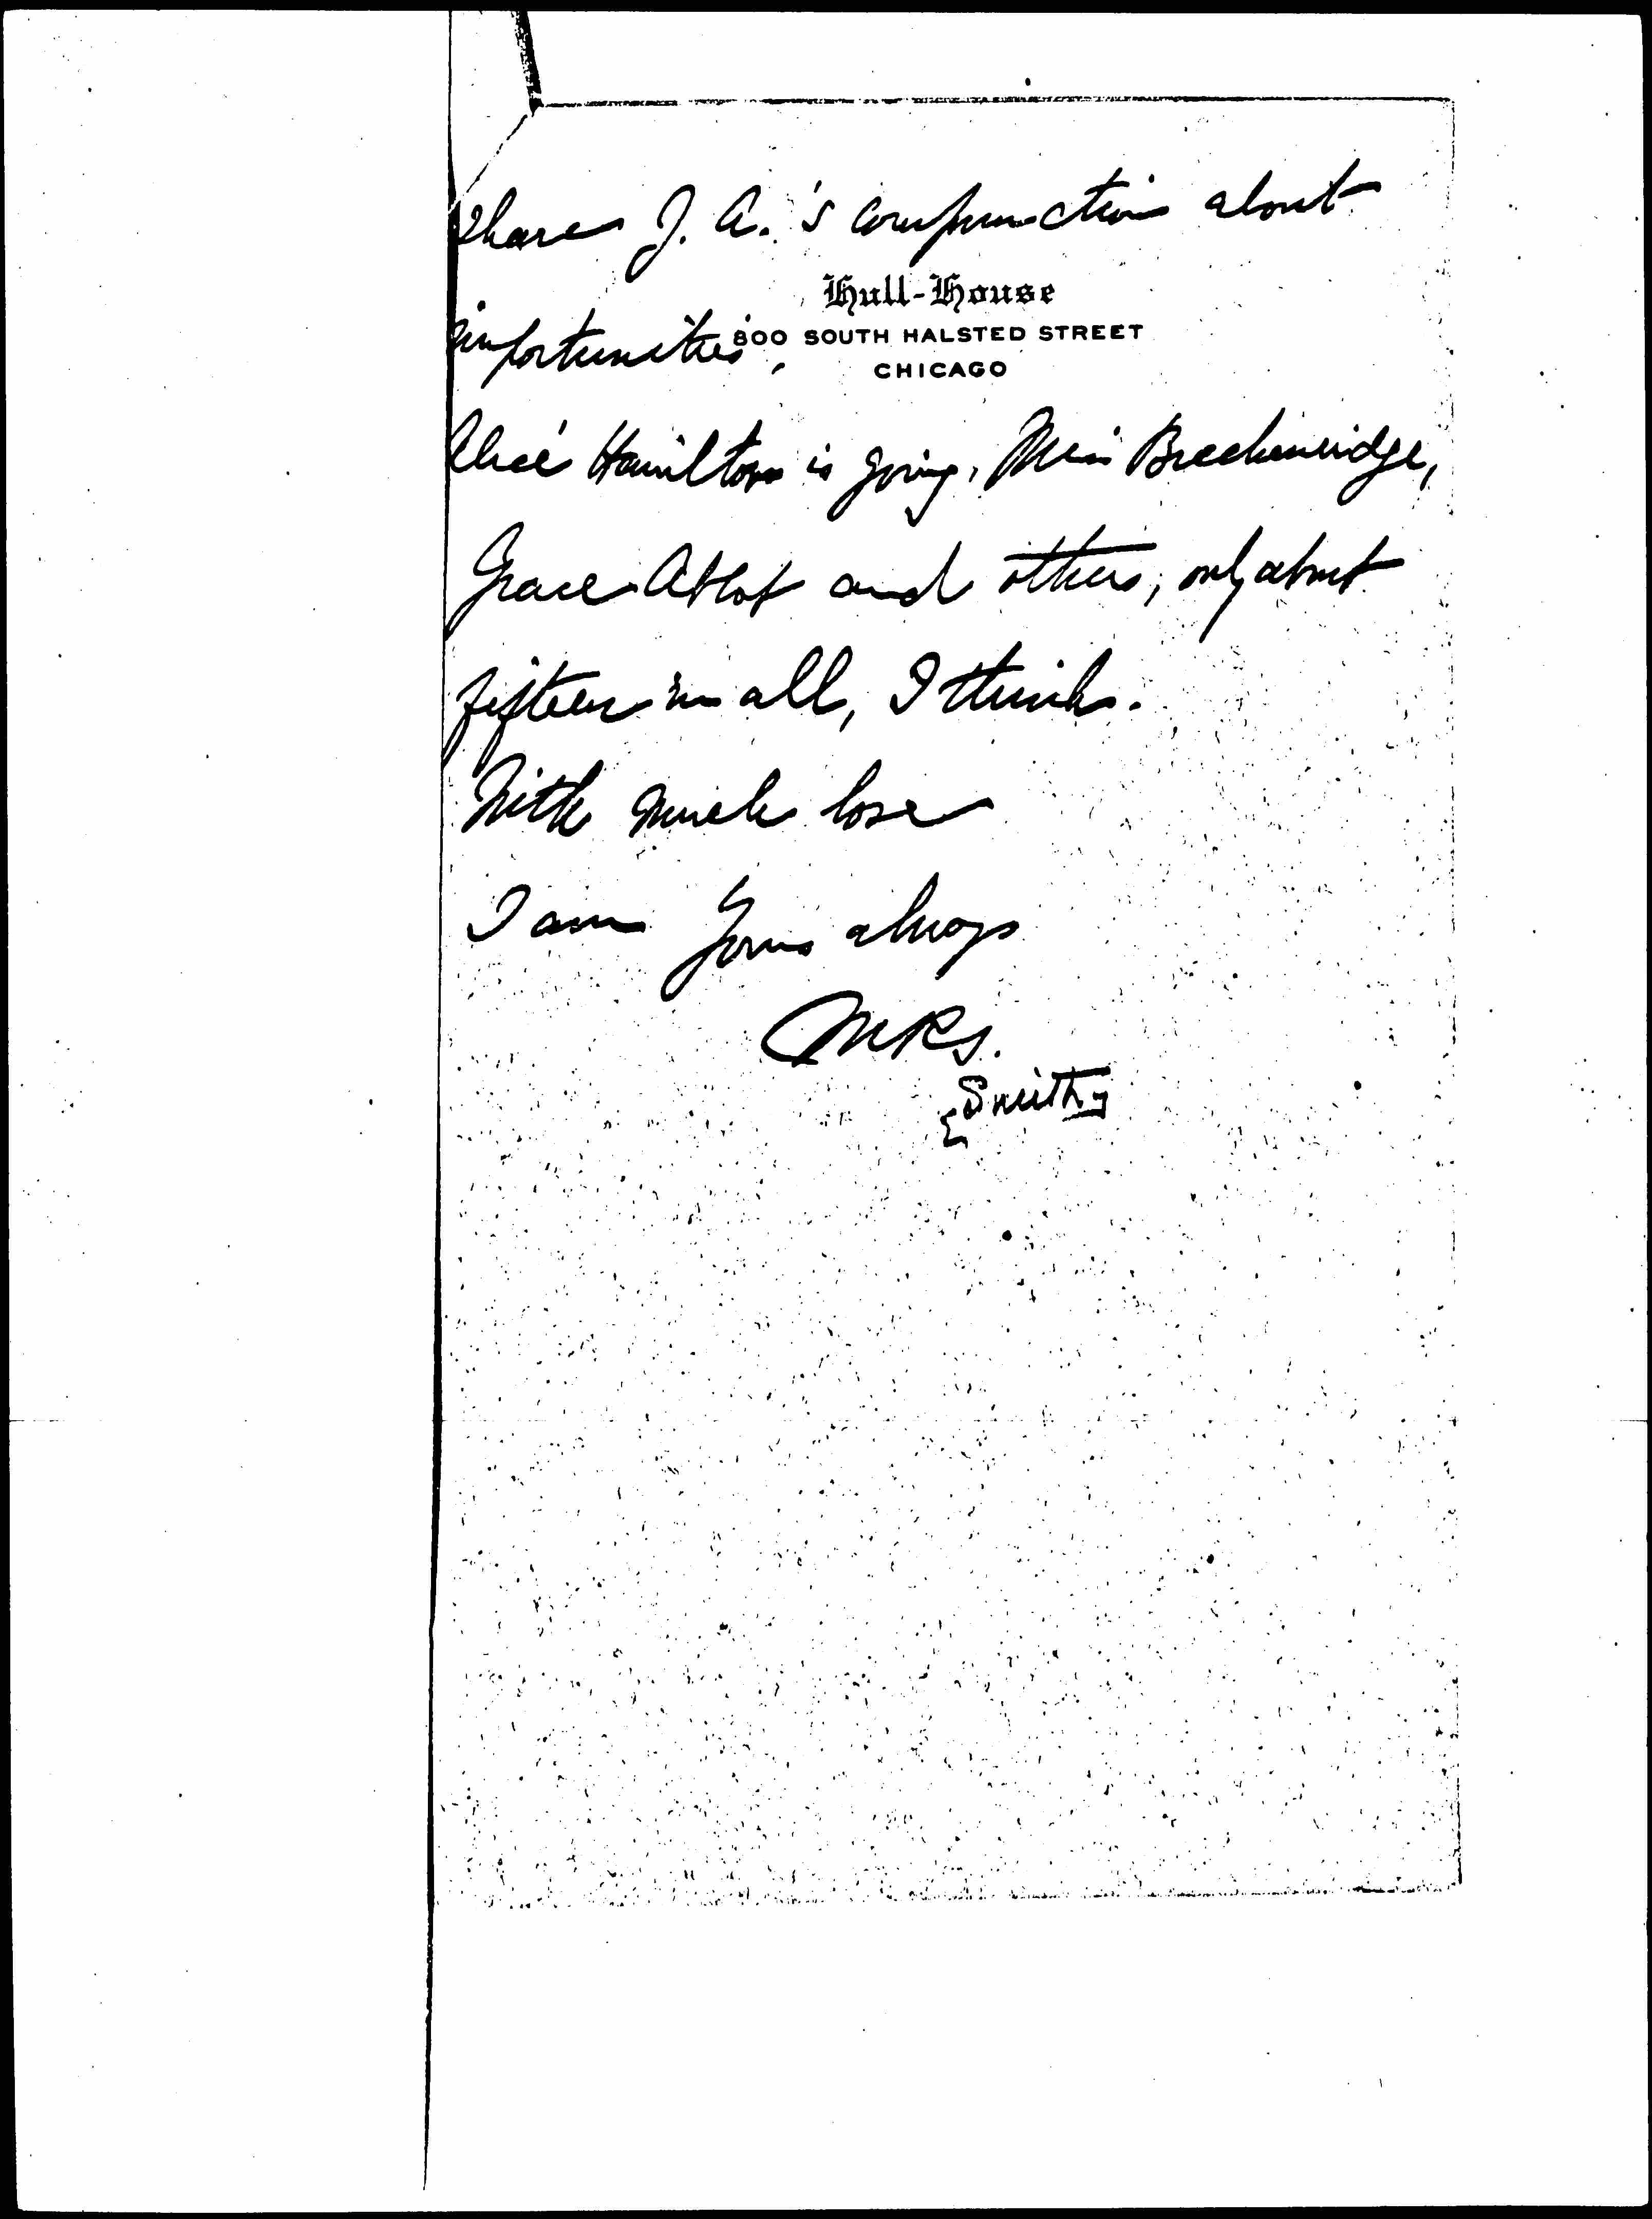 share J. A.'s compunction about
Hull-House
importunities. 800 SOUTH HALSTED STREET
CHICAGO
Alice Hamilton is going, Miss Breckenridge,
Grace Abbot and others, only about
fifteen in all, I think.
With much love
I am Yours always
MRS.
[Smith]